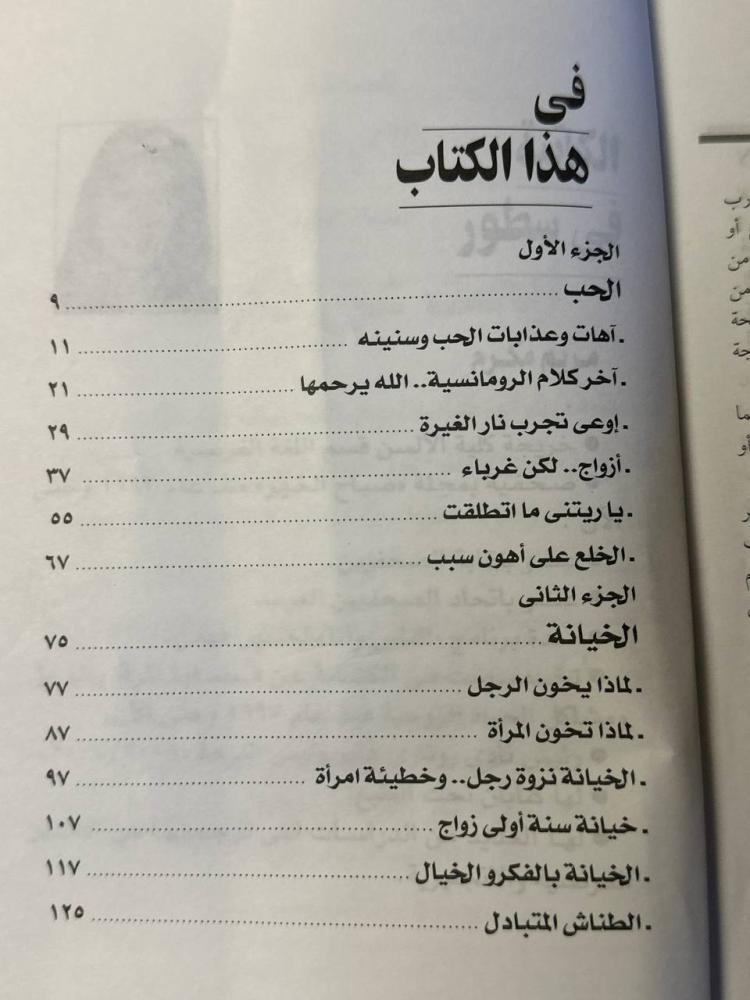 فى
هذا الكتاب
الجزء الأول
الحب ........ ٩
. آهات وعذابات الحب وسنينه ........ ١١
. آخر كلام الرومانسية.. الله يرحمها ........ ٢١
. إوعى تجرب نار الغيرة ........ ٢٩
. أزواج.. لكن غرباء ........ ٣٧
. يا ريتنى ما اتطلقت ........ ٥٥
. الخلع على أهون سبب ........ ٦٧
الجزء الثانى
الخيانة ........ ٧٥
. لماذا يخون الرجل ........ ٧٧
. لماذا تخون المرأة ........ ٨٧
. الخيانة نزوة رجل.. وخطيئة امرأة ........ ٩٧
. خيانة سنة أولى زواج ........ ١٠٧
. الخيانة بالفكرو الخيال ........ ١١٧
. الطناش المتبادل ........ ١٢٥